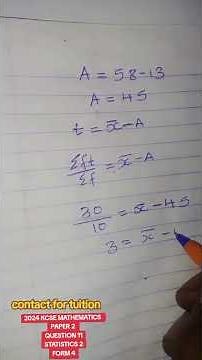 A = 58-13
A = 45
t = x̄-A
Σft/Σf = x̄-A
30/10 = x̄-45
3 = x̄ -
contact for tuition
2024 KCSE MATHEMATICS
PAPER 2
QUESTION 11
STATISTICS 2
FORM 4